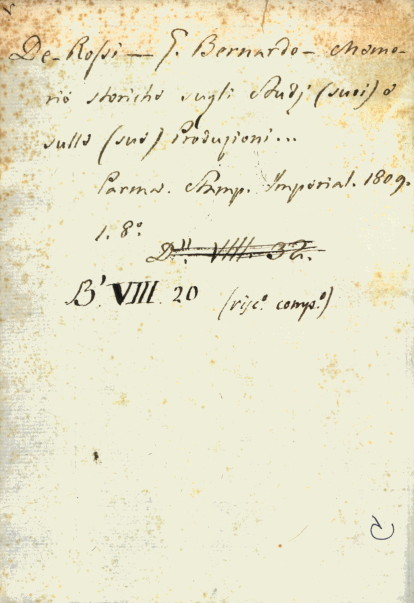 De-Rossi — G. Bernardo - Memo-
rie storiche sugli Studj (suoi) e
sulle (sue) Produzioni...
Parma. Stamp. Imperial. 1809.
1. 8.°
D." VIIII. 32.
B' VIII. 20 (risc.° comp.°)